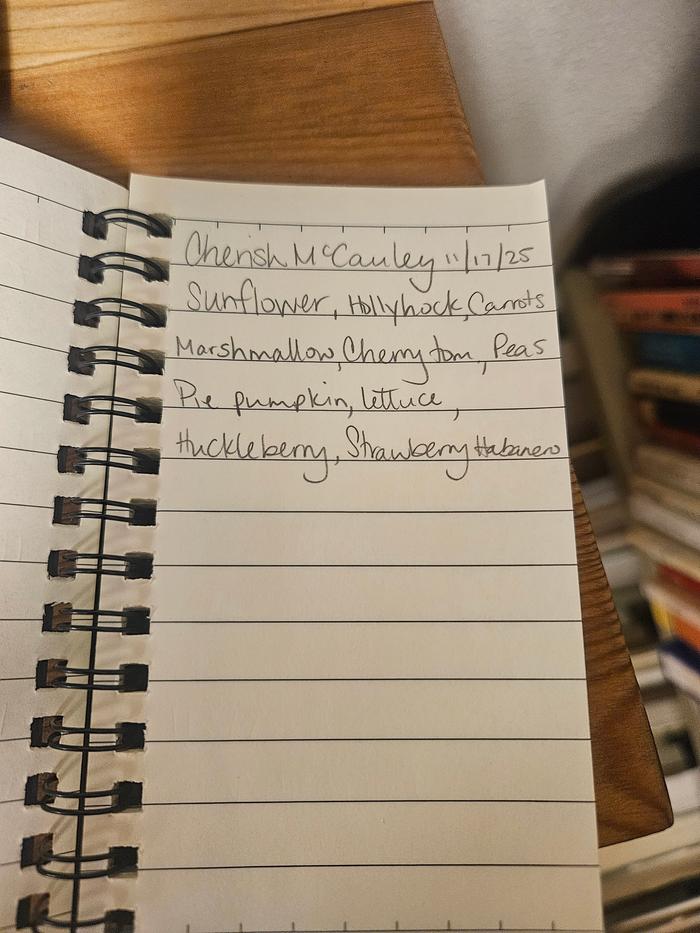 Cherish McCauley 11/17/25
Sunflower, Hollyhock, Carrots
Marshmallow, Cherry tom, Peas
Pie pumpkin, lettuce,
Huckleberry, Strawberry Habanero